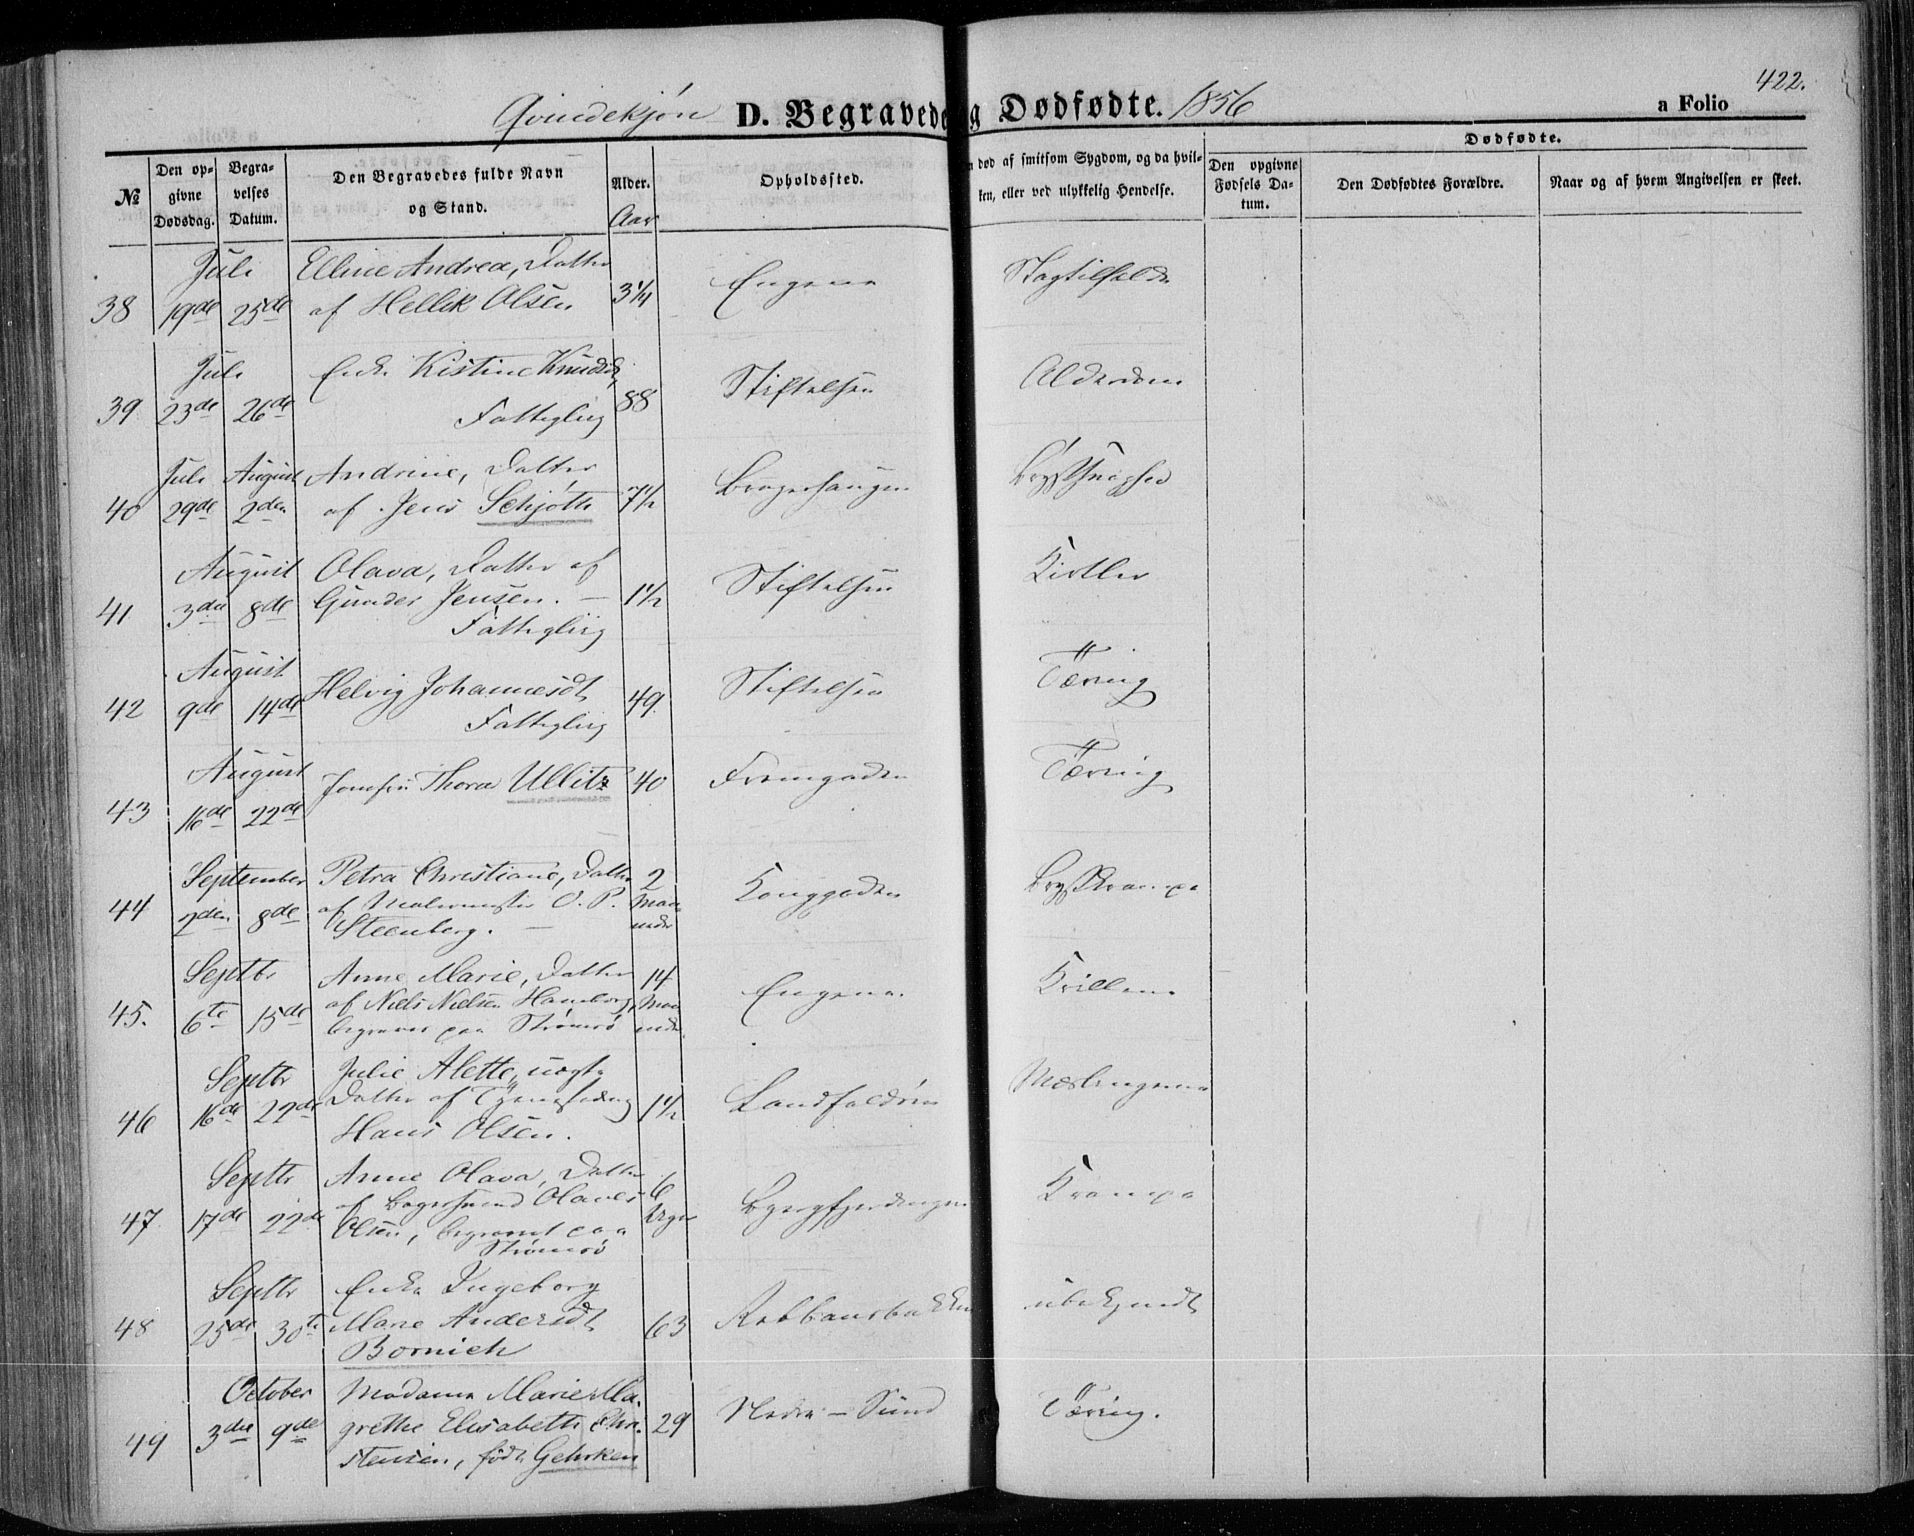 422.
Qvindekjøn D. Begravede og Dødfødte. 1856 a Folio
Dødfødte.
№
Den opgivne Dødsdag.
Begravelses Datum.
Den Begravedes fulde Navn og Stand.
Alder.
Aar
Opholdssted.
død af smitsom Sygdom, og da hvilken, eller ved ulykkelig Hendelse.
Den opgivne Fødsels Datum.
Den Dødfødtes Forældre.
Naar og af hvem Angivelsen er skeet.
Juli Elline Andrea, Datter
38 19de 25de af Hellik Olsen 3 1/4 Engene Slagtilfælde
Juli Enke Kistine Knudsd,
39. 23de 26de Fattiglig 88 Stiftelsen Alderdom
Juli August Andrine, Datter
40 29de 2den af Jens Schjøtte 7 1/2 Bragerhaugen
August Olava, Datter af
41 3die 8de Gunder Jensen. – 1 1/2 Stiftelsen Kirtler
Fattiglig
August Helvig Johannesdt
42 9de 14de Fattiglig 49. Stiftelsen Tæring
August Thora Ullitz 40 Tæring
43 16de 22de
September Petra Christiane, Datter 2
44 2den 8de af Malermester O. P. Maaneder Konggaden Brystkrampe
Steenberg. –
Septbr Anne Marie, Datter 14
45. 6te 15de af Niels Nielsen Hamborg, Maaneder Engene. Krillere
begraven paa Strømsø
Septbr Julie Alette, uægte
46 16de 22de Datter af Hans Olsen. 1 1/2 Landfaldøen Mæslingerne
Septbr Anne Olava, Datter 6
47. 17de 22de af Bagersvend Olaves Uger Krampe
Olsen, begravet paa
Strømsø
Septbr Enke Ingeborg
48 25de 30te Marie Andersdt 63 ubekjendt
Bornich
October Madame Marie Ma-
49 3die 9de grethe Elisabeth Chri- 29 Nedre – Sund Tæring.
stensen, født Gehrken